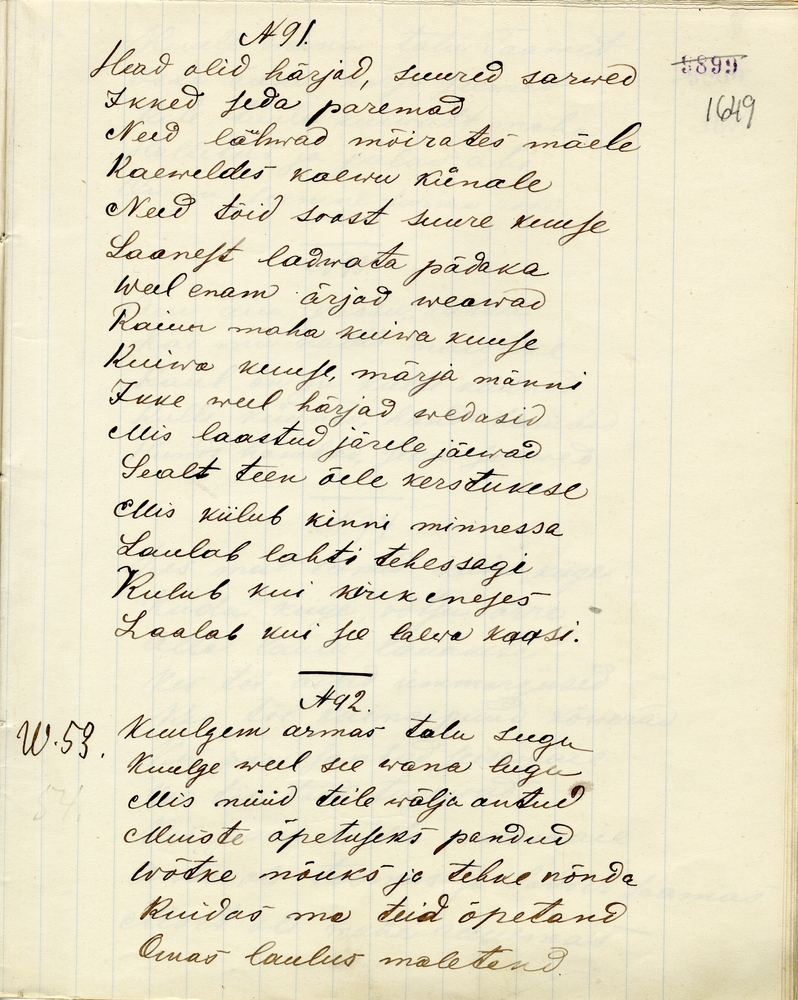 N 91.
5899
Head olid härjad, suured sarwed
1649
Ikked seda paremad
Need lähwad möirates mäele
Kaeweldes kaewu künale
Need töid soost suure kuuse
Laanest ladwata pädaka
Weel enam ärjad weawad
Raiun maha kuiwa kuuse
Kuiwa kuuse, märja männi
Ikke weel härjad wedasid
Mis laastud järele jäewad
Sealt teen öele kerstukese
Mis kiilub kinni minnessa
Laulab lahti tehessagi
Kulub kui kirik eneses
Laalab kui see laewa kaasi.
N 92.
W. 53.
Kuulgem armas talu sugu
Kuulge weel see wana lugu
Mis nüüd teile wälja antud
Muiste öpetuseks pandud
Wötke nöuks ja tehke nönda
Kuidas ma teid öpetand
Omas laulus maletand.